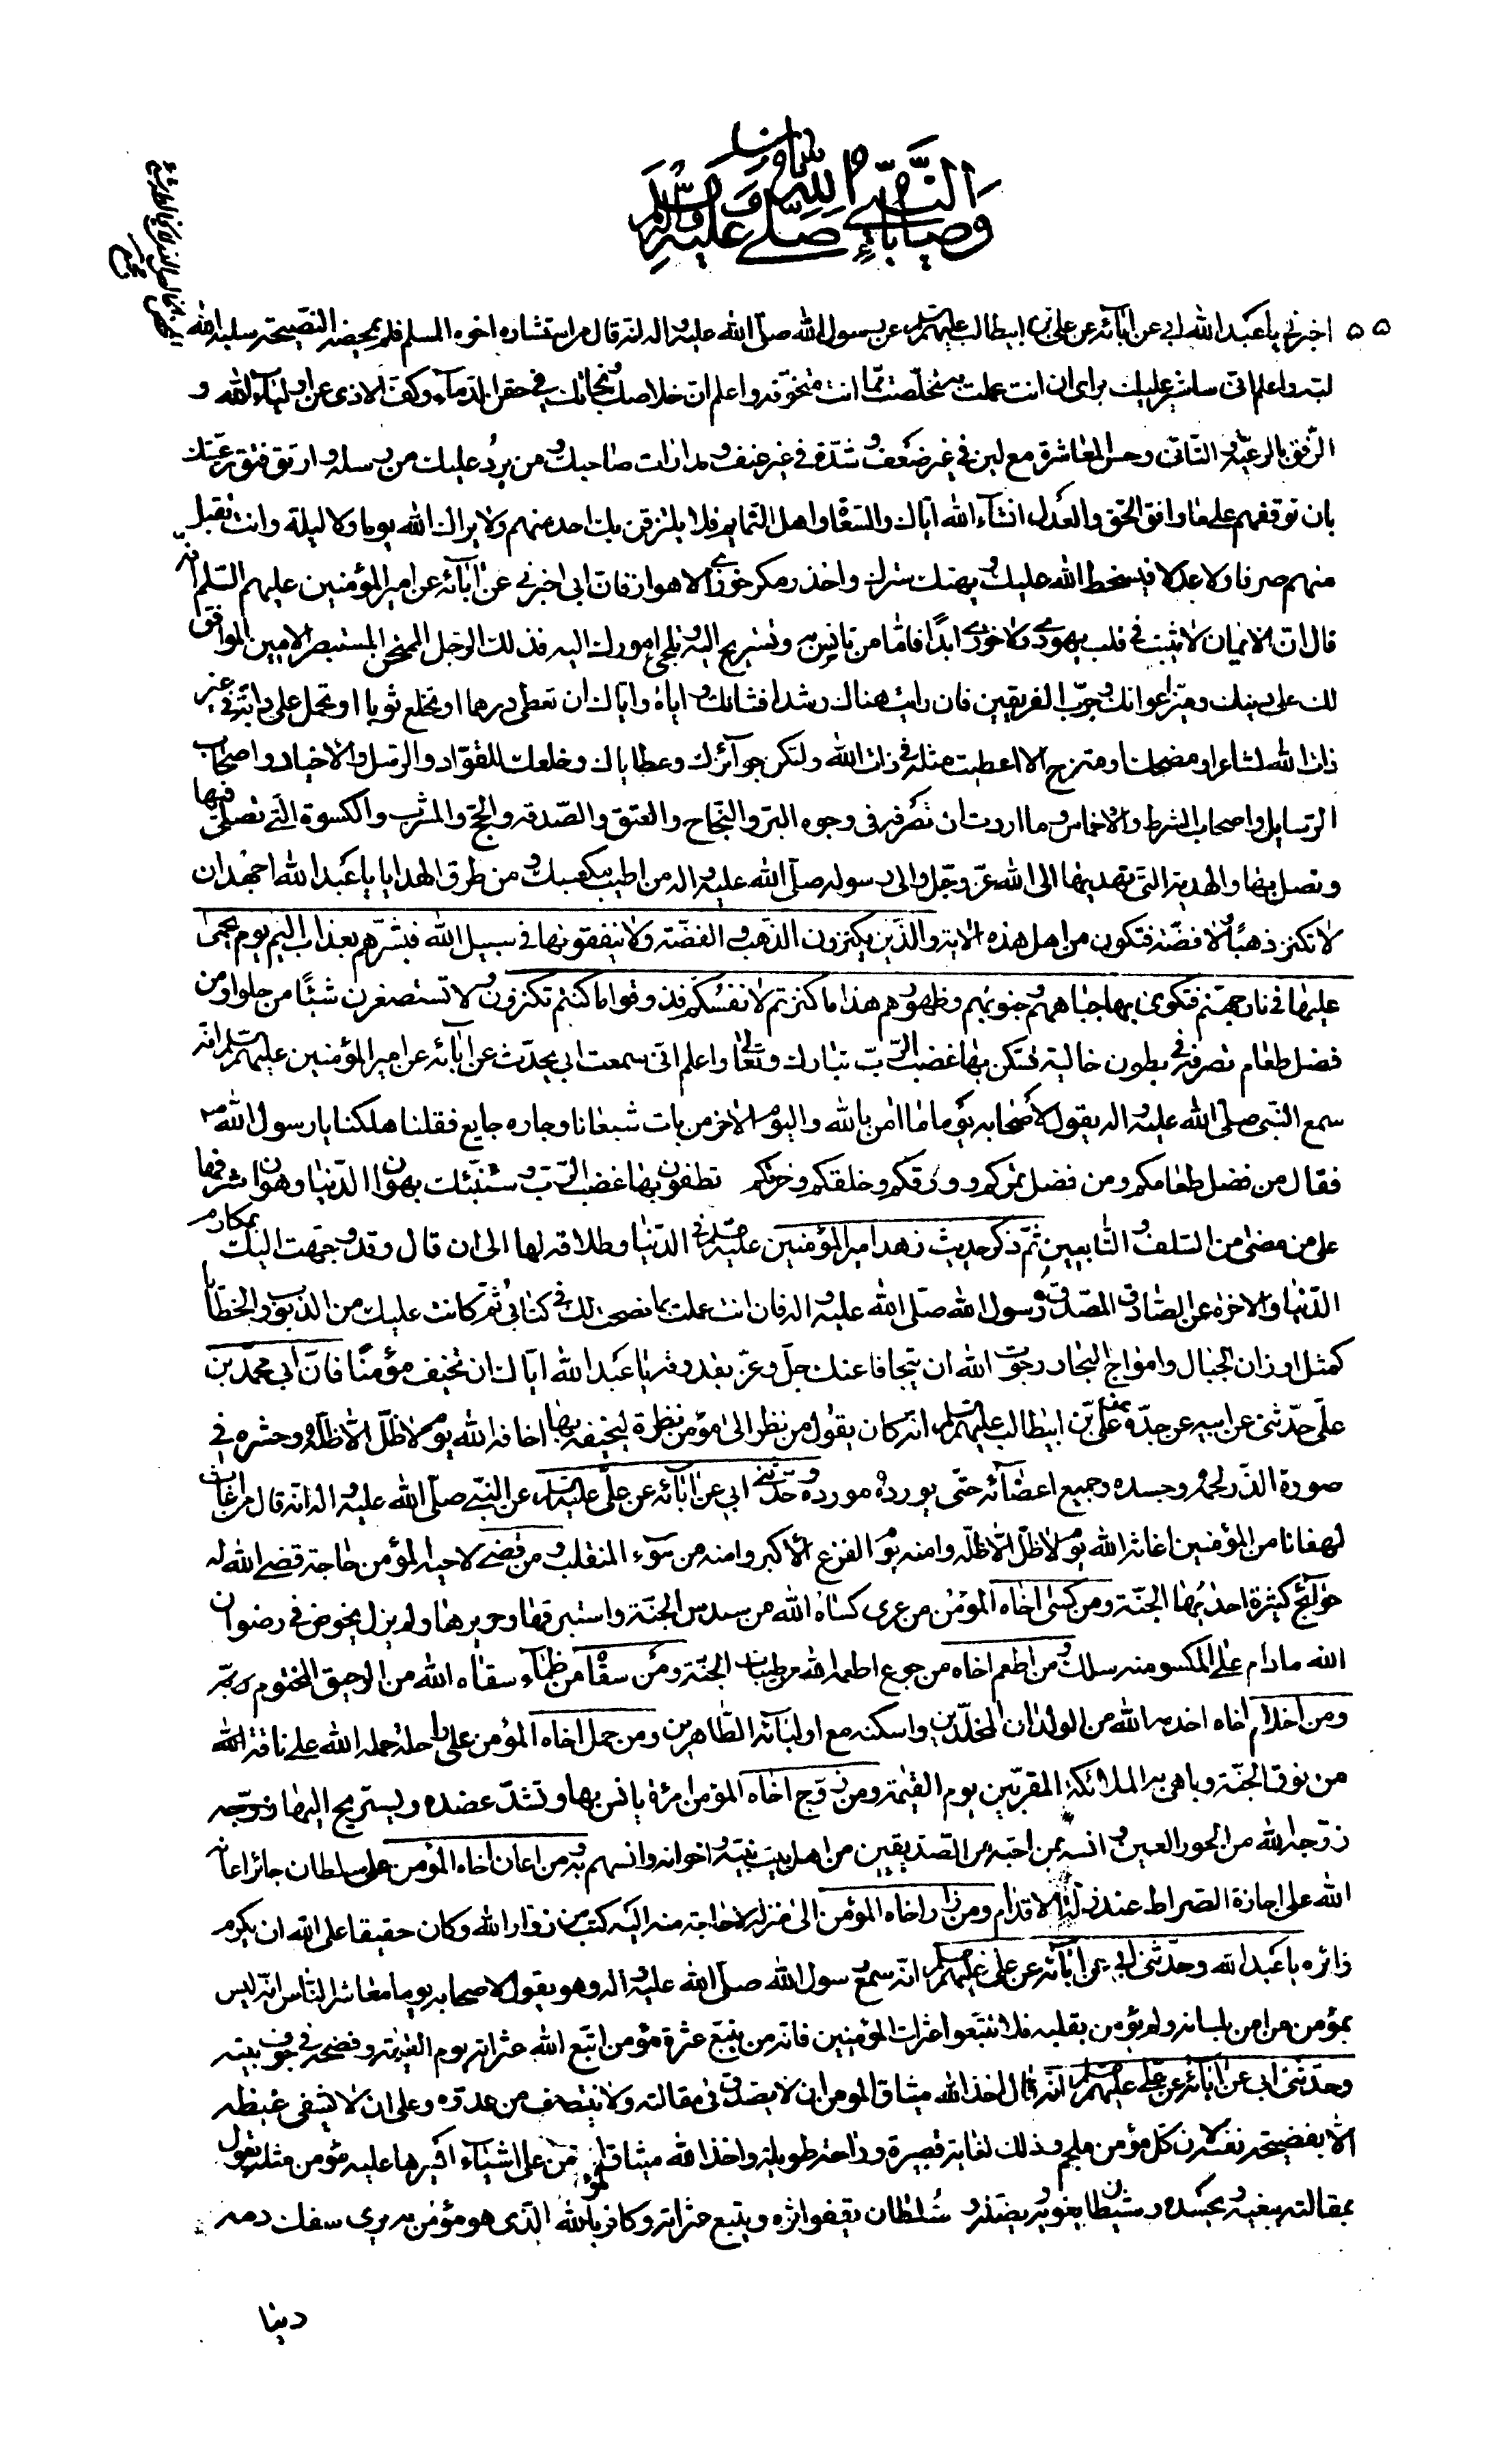 وصايا النبي صلى الله عليه وآله
٥٥ اخبرني يا عبد الله ابي عن آبائه عن علي بن ابيطالب عليهم السلم عن رسول الله صلى الله عليه واله انه قال من استشاره اخوه المسلم فلم يمحضه النصيحة سلبه الله
لبه واعلم اني ساشير عليك براى ان انت عملت به تخلصت مما انت متخوفه واعلم ان خلاصك ونجاتك في حقن الدماء وكف الاذى عن اولياء الله و
الرفق بالرعية والتاني وحسن المعاشرة مع لين في غير ضعف وشدة في غير عنف ومدارات صاحبك ومن يرد عليك من رسله وارتق فتق رعيتك
بان توقفهم على ما وافق الحق والعدل انشاء الله اياك والسعاة واهل النمايم فلا يلتزقن بك احد منهم ولا يراك الله يوما ولا ليلة وانت تقبل
منهم صرفا ولا عدلا فيسخط الله عليك ويهتك سترك واحذر مكر خوزى الاهواز فان ابى اخبرني عن آبائه عن امير المؤمنين عليهم السلم انه
قال ان الايمان لا يثبت في قلب يهودى ولا خوزى ابدا فاما من تانس به وتستريح اليه وتلجئ امورك اليه فذلك الرجل الممتحن المستبصر الامين الموافق
لك على دينك وميز اعوانك وجرب الفريقين فان رايت هناك رشدا فشانك واياه واياك ان تعطى درهما او تخلع ثوبا او تحمل على دابة في غير
ذات الله لشاعر او مضحك او ممتزح الا اعطيت مثله في ذات الله ولتكن جوائزك وعطاياك وخلعك للقواد والرسل والاخبار واصحاب
الرسايل واصحاب الشرط والاخماس وما اردت ان تصرفه في وجوه البر والنجاح والعتق والصدقة والحج والمشرب والكسوة التي تصلي فيها
وتصل بها والهدية التي تهديها الى الله عز وجل والى رسوله صلى الله عليه واله من اطيب مكسبك ومن طرق الهدايا يا عبد الله اجهد ان
لا تكنز ذهبا ولا فضة فتكون من اهل هذه الاية والذين يكنزون الذهب و الفضة ولا ينفقونها في سبيل الله فبشرهم بعذاب اليم يوم يحمى
عليها في نار جهنم فتكوى بها جباههم وجنوبهم وظهورهم هذا ما كنزتم لانفسكم فذوقوا ما كنتم تكنزون ولا تستصغرن شئا من حلو او من
فضل طعام تصرفه في بطون خالية تسكن بها غضب الرب تبارك وتعالى واعلم اني سمعت ابي يحدث عن آبائه عن امير المؤمنين عليهم السلم انه
سمع النبي صلى الله عليه واله يقول لاصحابه يوما ما امن بالله واليوم الاخر من بات شبعانا وجاره جايع فقلنا هلكنا يا رسول الله
فقال من فضل طعامكم ومن فضل تمركم وورقكم وخلقكم وخرقكم تطفون بها غضب الرب وسننبئك بهوان الدنيا وهوان شرفها
على من مضى من السلف والتابعين ثم ذكر حديث زهد امير المؤمنين عليه السلم في الدنيا وطلاقه لها الى ان قال وقد وجهت اليك بمكارم
الدنيا والاخرة عن الصادق المصدق رسول الله صلى الله عليه واله فان انت عملت بما نصحت لك في كتابي ثم كانت عليك من الذنوب والخطايا
كمثل اوزان الجبال وامواج البحار رجوت الله ان يتجافا عنك جل وعز بقدرته يا عبد الله اياك ان تخيف مؤمنا فان ابى محمد بن
على حدثنى عن ابيه عن جده على بن ابيطالب عليهم السلم انه كان يقول من نظر الى مؤمن نظرة ليخيفه بها اخافه الله يوم لا ظل الا ظله وحشره في
صورة الذر لحمه وجسده وجميع اعضائه حتى يورده مورده وحدثني ابي عن آبائه عن على عليه السلم عن النبي صلى الله عليه واله انه قال من اغاث
لهفانا من المؤمنين اغاثه الله يوم لا ظل الا ظله وامنه يوم الفزع الاكبر وامنه من سوء المنقلب ومن قضى لاخيه المؤمن حاجة قضى الله له
حوائج كثيرة احديها الجنة ومن كسى اخاه المؤمن من عرى كساه الله من سندس الجنة واستبرقها وحريرها ولم يزل يخوض في رضوان
الله مادام على المكسو منه سلك ومن اطعم اخاه من جوع اطعمه الله من طيبات الجنة ومن سقاه من ظماء سقاه الله من الرحيق المختوم ريه
ومن اخدم اخاه اخدمه الله من الولدان المخلدين واسكنه مع اوليائه الطاهرين ومن حمل اخاه المؤمن على راحلة حمله الله على ناقة الله
من نوق الجنة وباهى به الملائكة المقربين يوم القيمة ومن زوج اخاه المؤمن امرئة يانس بها وتشد عضده ويستريح اليها زوجه
زوجه الله من الحور العين وانسه بمن احبه من الصديقين من اهل بيت نبيه واخوانه وانسهم به ومن اعان اخاه المؤمن على سلطان جائر اعانه
الله على اجازة الصراط عند زلة الاقدام ومن زار اخاه المؤمن الى منزله لا حاجة منه اليه كتب من زوار الله وكان حقيقا على الله ان يكرم
زائره يا عبد الله وحدثنى ابي عن آبائه عن على عليهم السلم انه سمع رسول الله صلى الله عليه واله وهو يقول لاصحابه يوما معاشر الناس انه ليس
بمؤمن من امن بلسانه ولم يؤمن بقلبه فلا تتبعوا عثرات المؤمنين فانه من يتبع عثرة مؤمن اتبع الله عثراته يوم القيمة وفضحه في جوف بيته
وحدثنى ابي عن آبائه عن على عليهم السلم انه قال اخذ الله ميثاق المومن ان لا يصدق في مقالته ولا ينتصف من عدوه وعلى ان لا يشفى غيظه
الا بفضيحة نفسه لان كل مؤمن ملجم وذلك لغاية قصيرة وراحة طويلة واخذ الله ميثاق المؤمن على اشياء ايسرها عليه مؤمن مثله يقول
بمقالته يبغيه ويحسده وشيطان يغويه ويضله وسلطان يقفو اثره ويتبع عثراته وكافر بالله الذي هو مؤمن به يرى سفك دمه
دينا